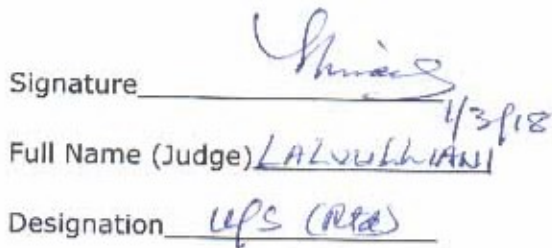 Signature
1/3/18
Full Name (Judge) LALVULLIANI
Designation (Rtd)